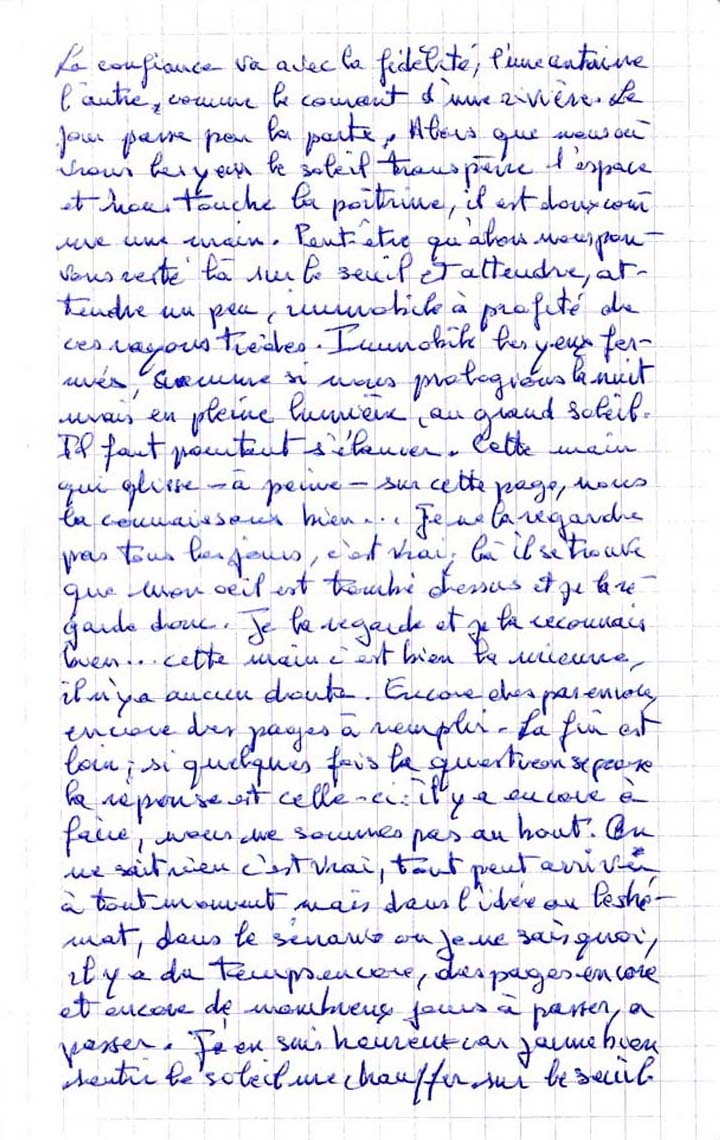 La confiance va avec la fidélité, l'une entaine
l'autre, comme le courant d'une rivière. Le
jour passe par la porte. Alors que nous ou
vrons les yeux le soleil transperce l'espace
et nous touche la poitrine, il est doux com
me une main. Peut-être qu'alors nous pou-
vons resté là sur le seuil et attendre, at-
tendre un peu, immobile à profité de
ces rayons tiédes. Immobile les yeux fer-
més, comme si nous prolongions la nuit
mais en pleine lumière, au grand soleil.
Il faut pourtant s'élancer. Cette main
qui glisse - à peine - sur cette page, nous
la connaissons bien... Je ne la regarde
pas tous les jours, c'est vrai; là il se trouve
que mon oeil est tombé dessus et je la re-
garde donc. Je la regarde et je la reconnais
bien... cette main c'est bien la mienne,
il n'y a aucun doute. Encore des pas encore,
encore des pages à remplir. La fin est
loin; si quelques fois la question se pose
la réponse est celle-ci: il y a encore à
faire, nous ne sommes pas au bout. On
ne sait rien c'est vrai, tout peut arriver
à tout moment mais dans l'idée ou le shé-
mat, dans le sénario ou je ne sais quoi,
il y a du temps encore, des pages encore
et encore de nombreux jours à passer, a
passer. J'en suis heureux car j'aime bien
sentir le soleil me chauffer sur le seuil